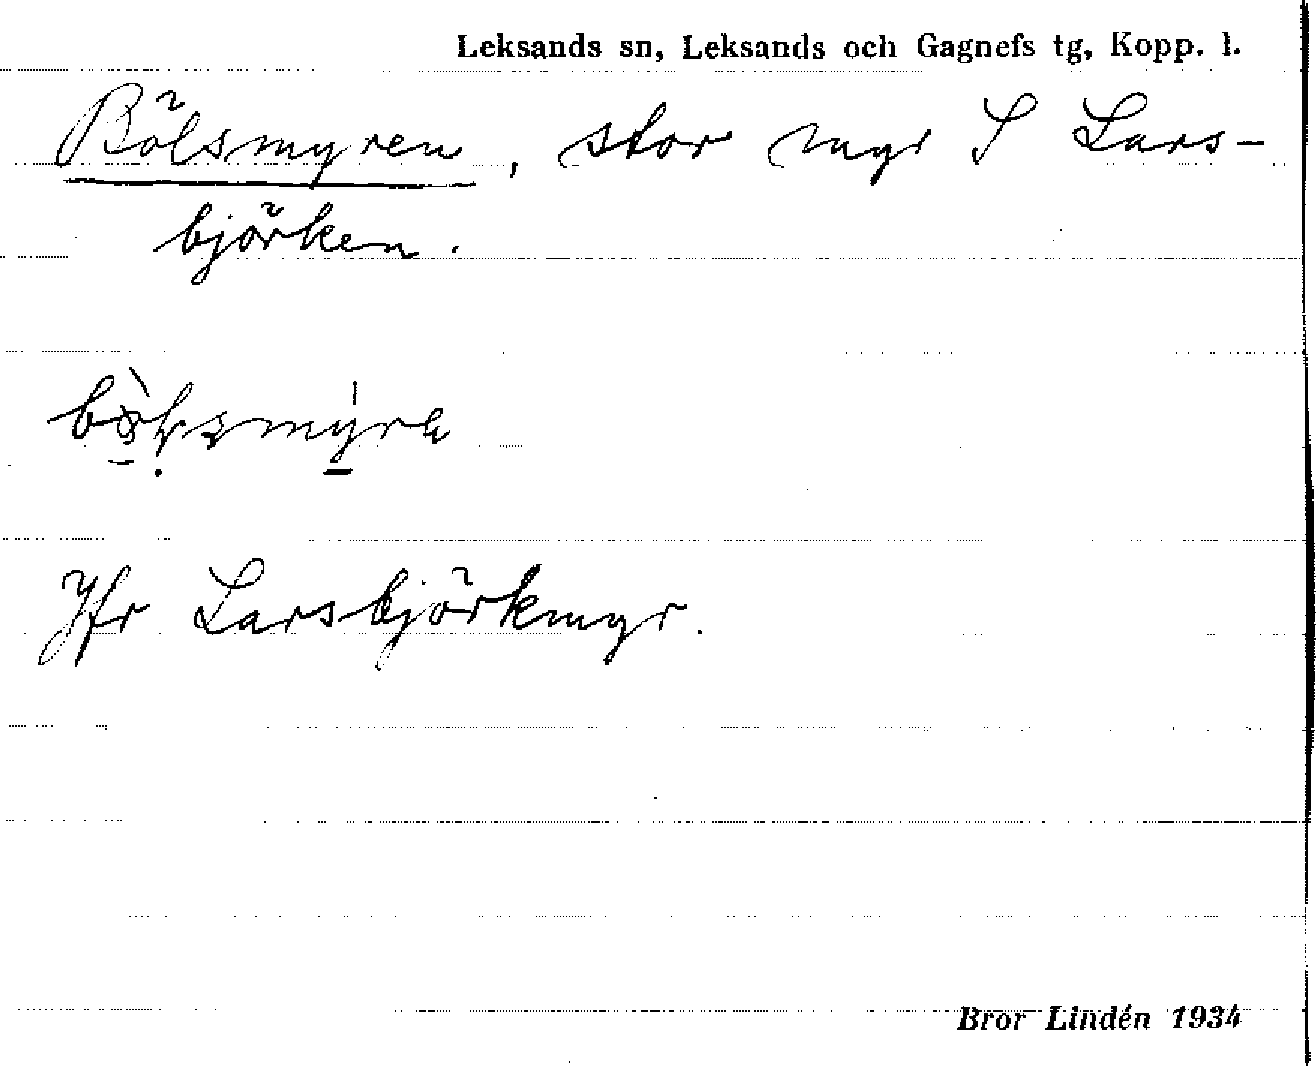 Leksands sn, Leksands och Gagnefs tg, Kopp. l.
Bölsmyren, stor myr S Lars-
björken.
Jfr Larsbjörkmyr.
Bror Lindén 1934